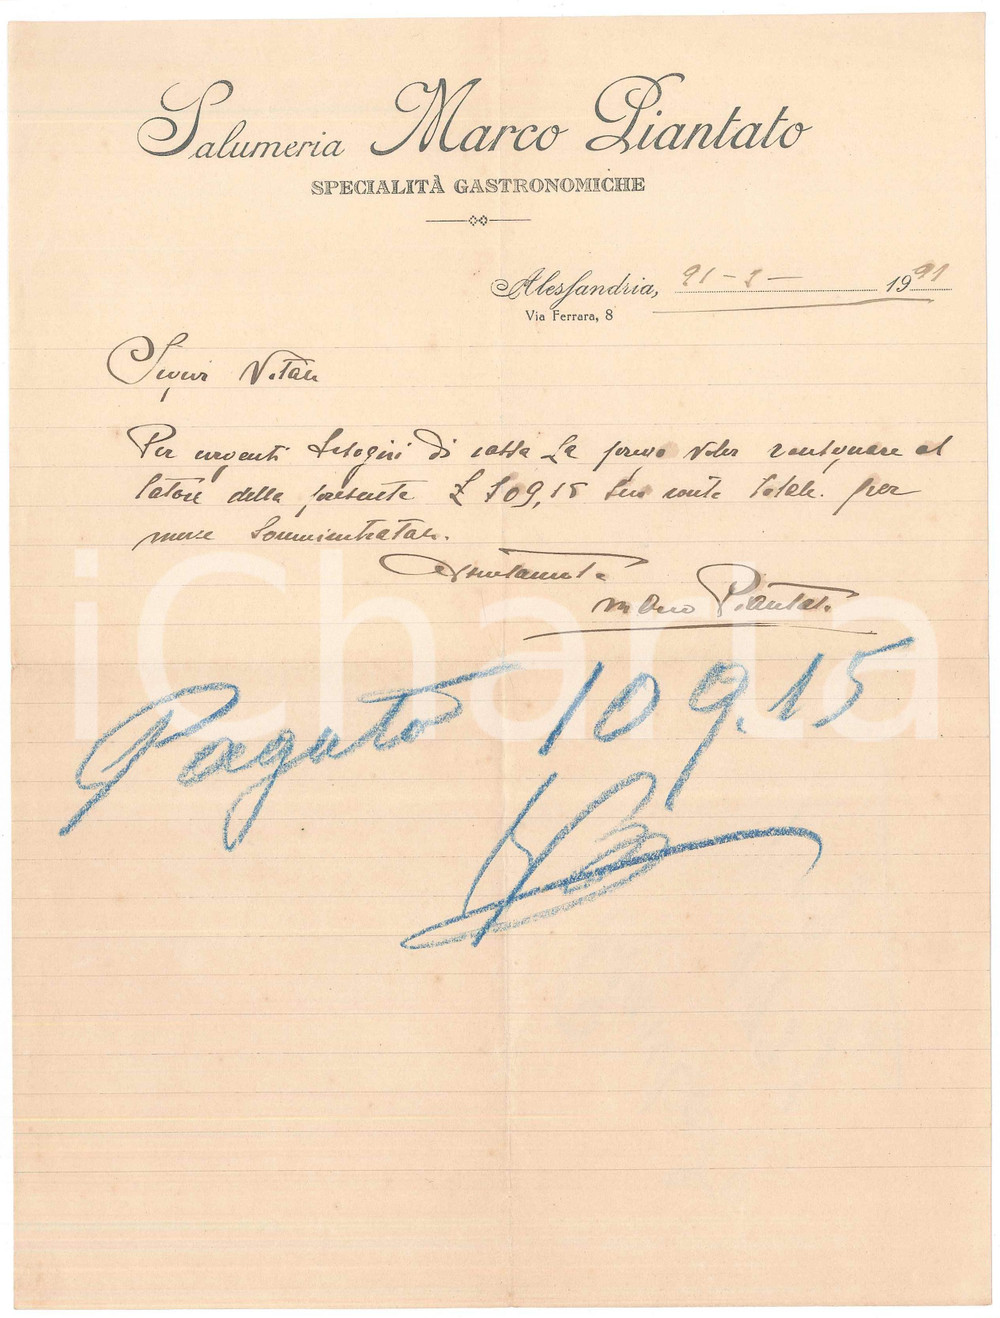 Salumeria Marco Piantato
SPECIALITÀ GASTRONOMICHE
Alessandria, 21-2- 1921
Via Ferrara, 8
Signor Vitale
Per urgenti bisogni di cassa La prego voler consegnare al
latore della presente £ 109,15 Suo conto totale per
merce somministratale.
Marco Piantato
Pagato 109.15
iCharta